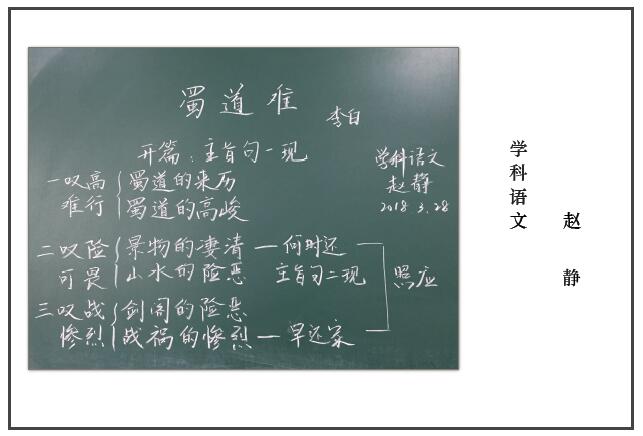 蜀道难
李白
开篇：主旨句一现
学科语文
赵静
2018 3.28
一叹高 { 蜀道的来历
难行 { 蜀道的高峻
二叹险 { 景物的凄清 — 何时还
可畏 { 山水的险恶 主旨句二现
照应
三叹战 { 剑阁的险恶
惨烈 { 战祸的惨烈 — 早还家
学科语文
赵静